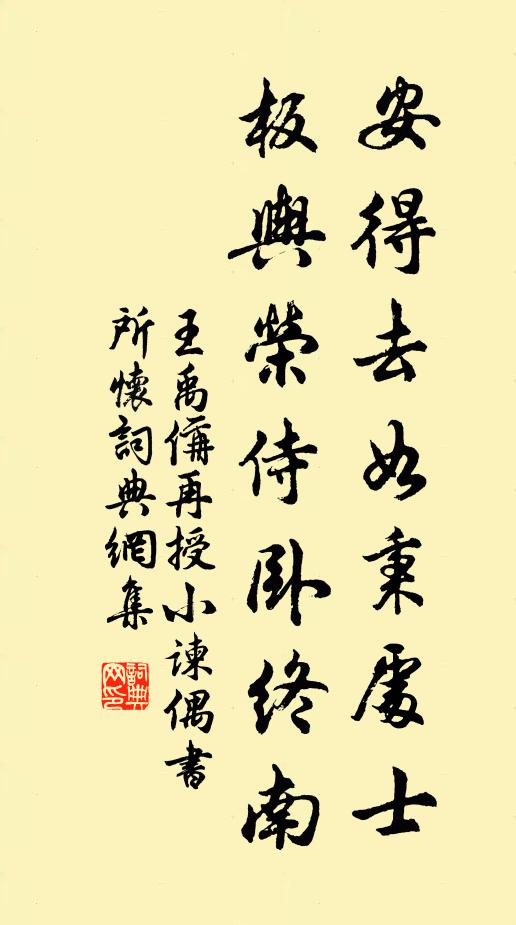 安得去如秉處士
板輿榮侍臥終南
王禹偁再授小諫偶書
所懷詞典網集
詞典
网印